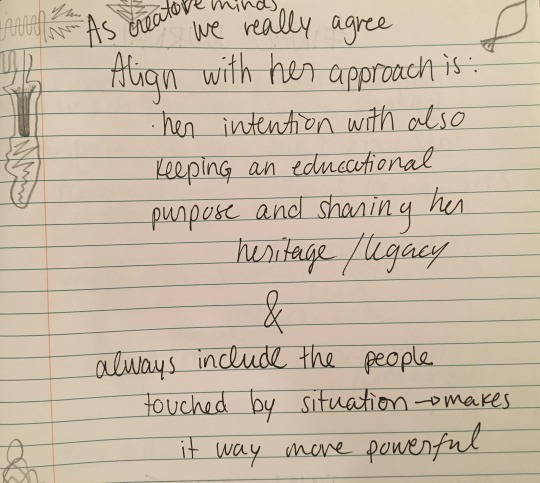 As creatove minds
we really agree
Align with her approach is:
· her intention with also
keeping an educational
purpose and sharing her
heritage / legacy
&
always include the people
touched by situation → makes
it way more powerful